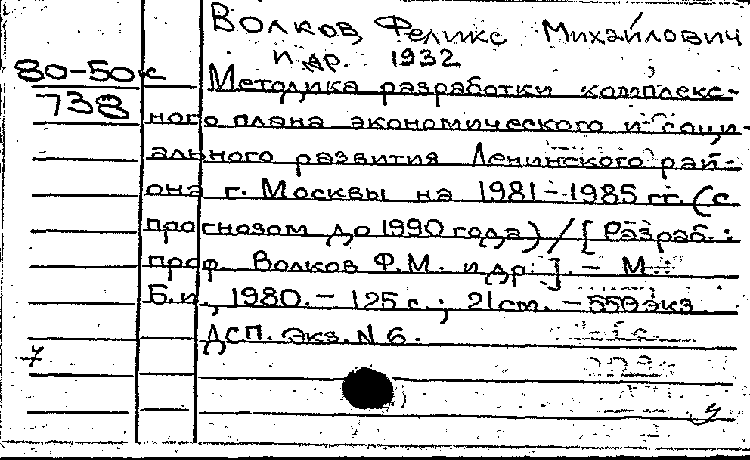 Волков Феликс Михайлович
и др. 1932
80-50к
738
Методика разработки комплекс-
ного плана экономического и соци-
ального развития Ленинского рай-
она г. Москвы на 1981-1985 гг. (с
прогнозом до 1990 года) / [Разраб.:
проф. Волков Ф.М. и др.]. - М.:
Б.и., 1980. - 125 с.; 21 см. - 550 экз.
ДСП. Экз. N 6.